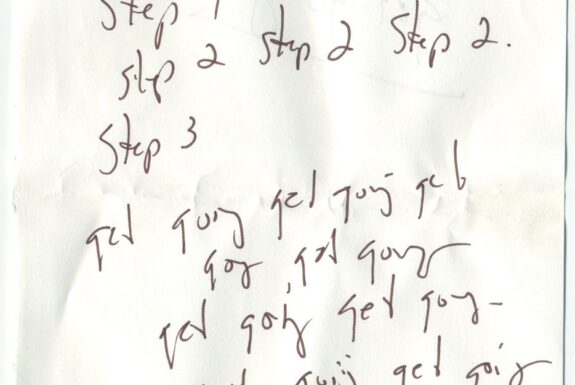 Step 1
step 2 step 2 step 2.
step 3
get going get going get
going, get going
get going get going-
get going get going